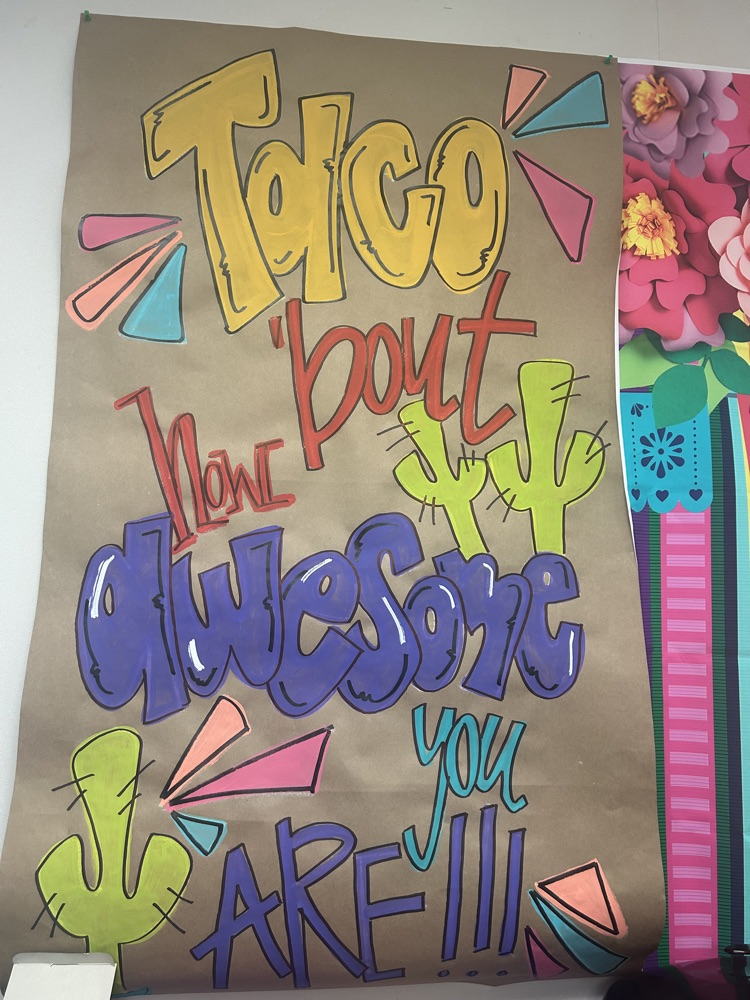 Taco
'bout
how
awesome
you
ARE!!!